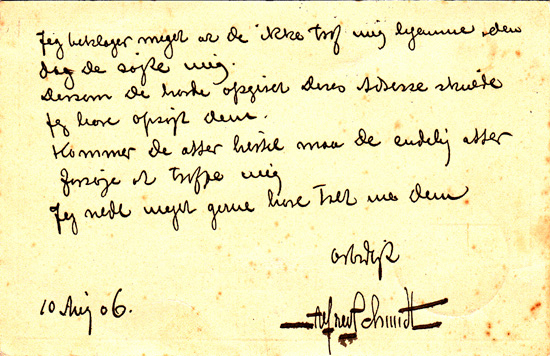 Jeg beklager meget at de ikke traf mig hjemme den
dag de søgte mig.
Dersom De havde opgivet Deres Adresse skulde
jeg have opsøgt dem.
Kommer de atter hertil maa de endelig atter
forsøge at treffe mig
Jeg vilde meget gerne have talt med dem
Ærbødigst
10 Aug 06.
Alfred Schmidt